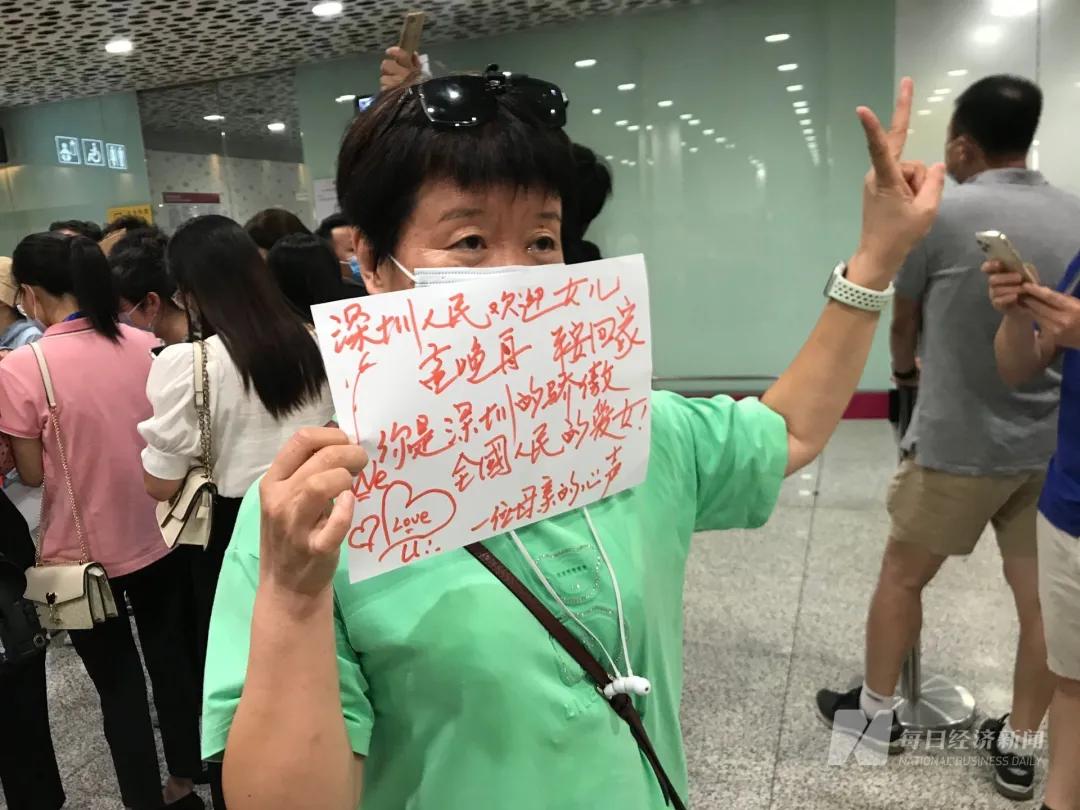 深圳人民欢迎女儿
孟晚舟 平安回家
你是深圳的骄傲
全國人民的爱女!
一位母亲的心声
We
Love
U:
每日经济新闻
NATIONAL BUSINESS DAILY